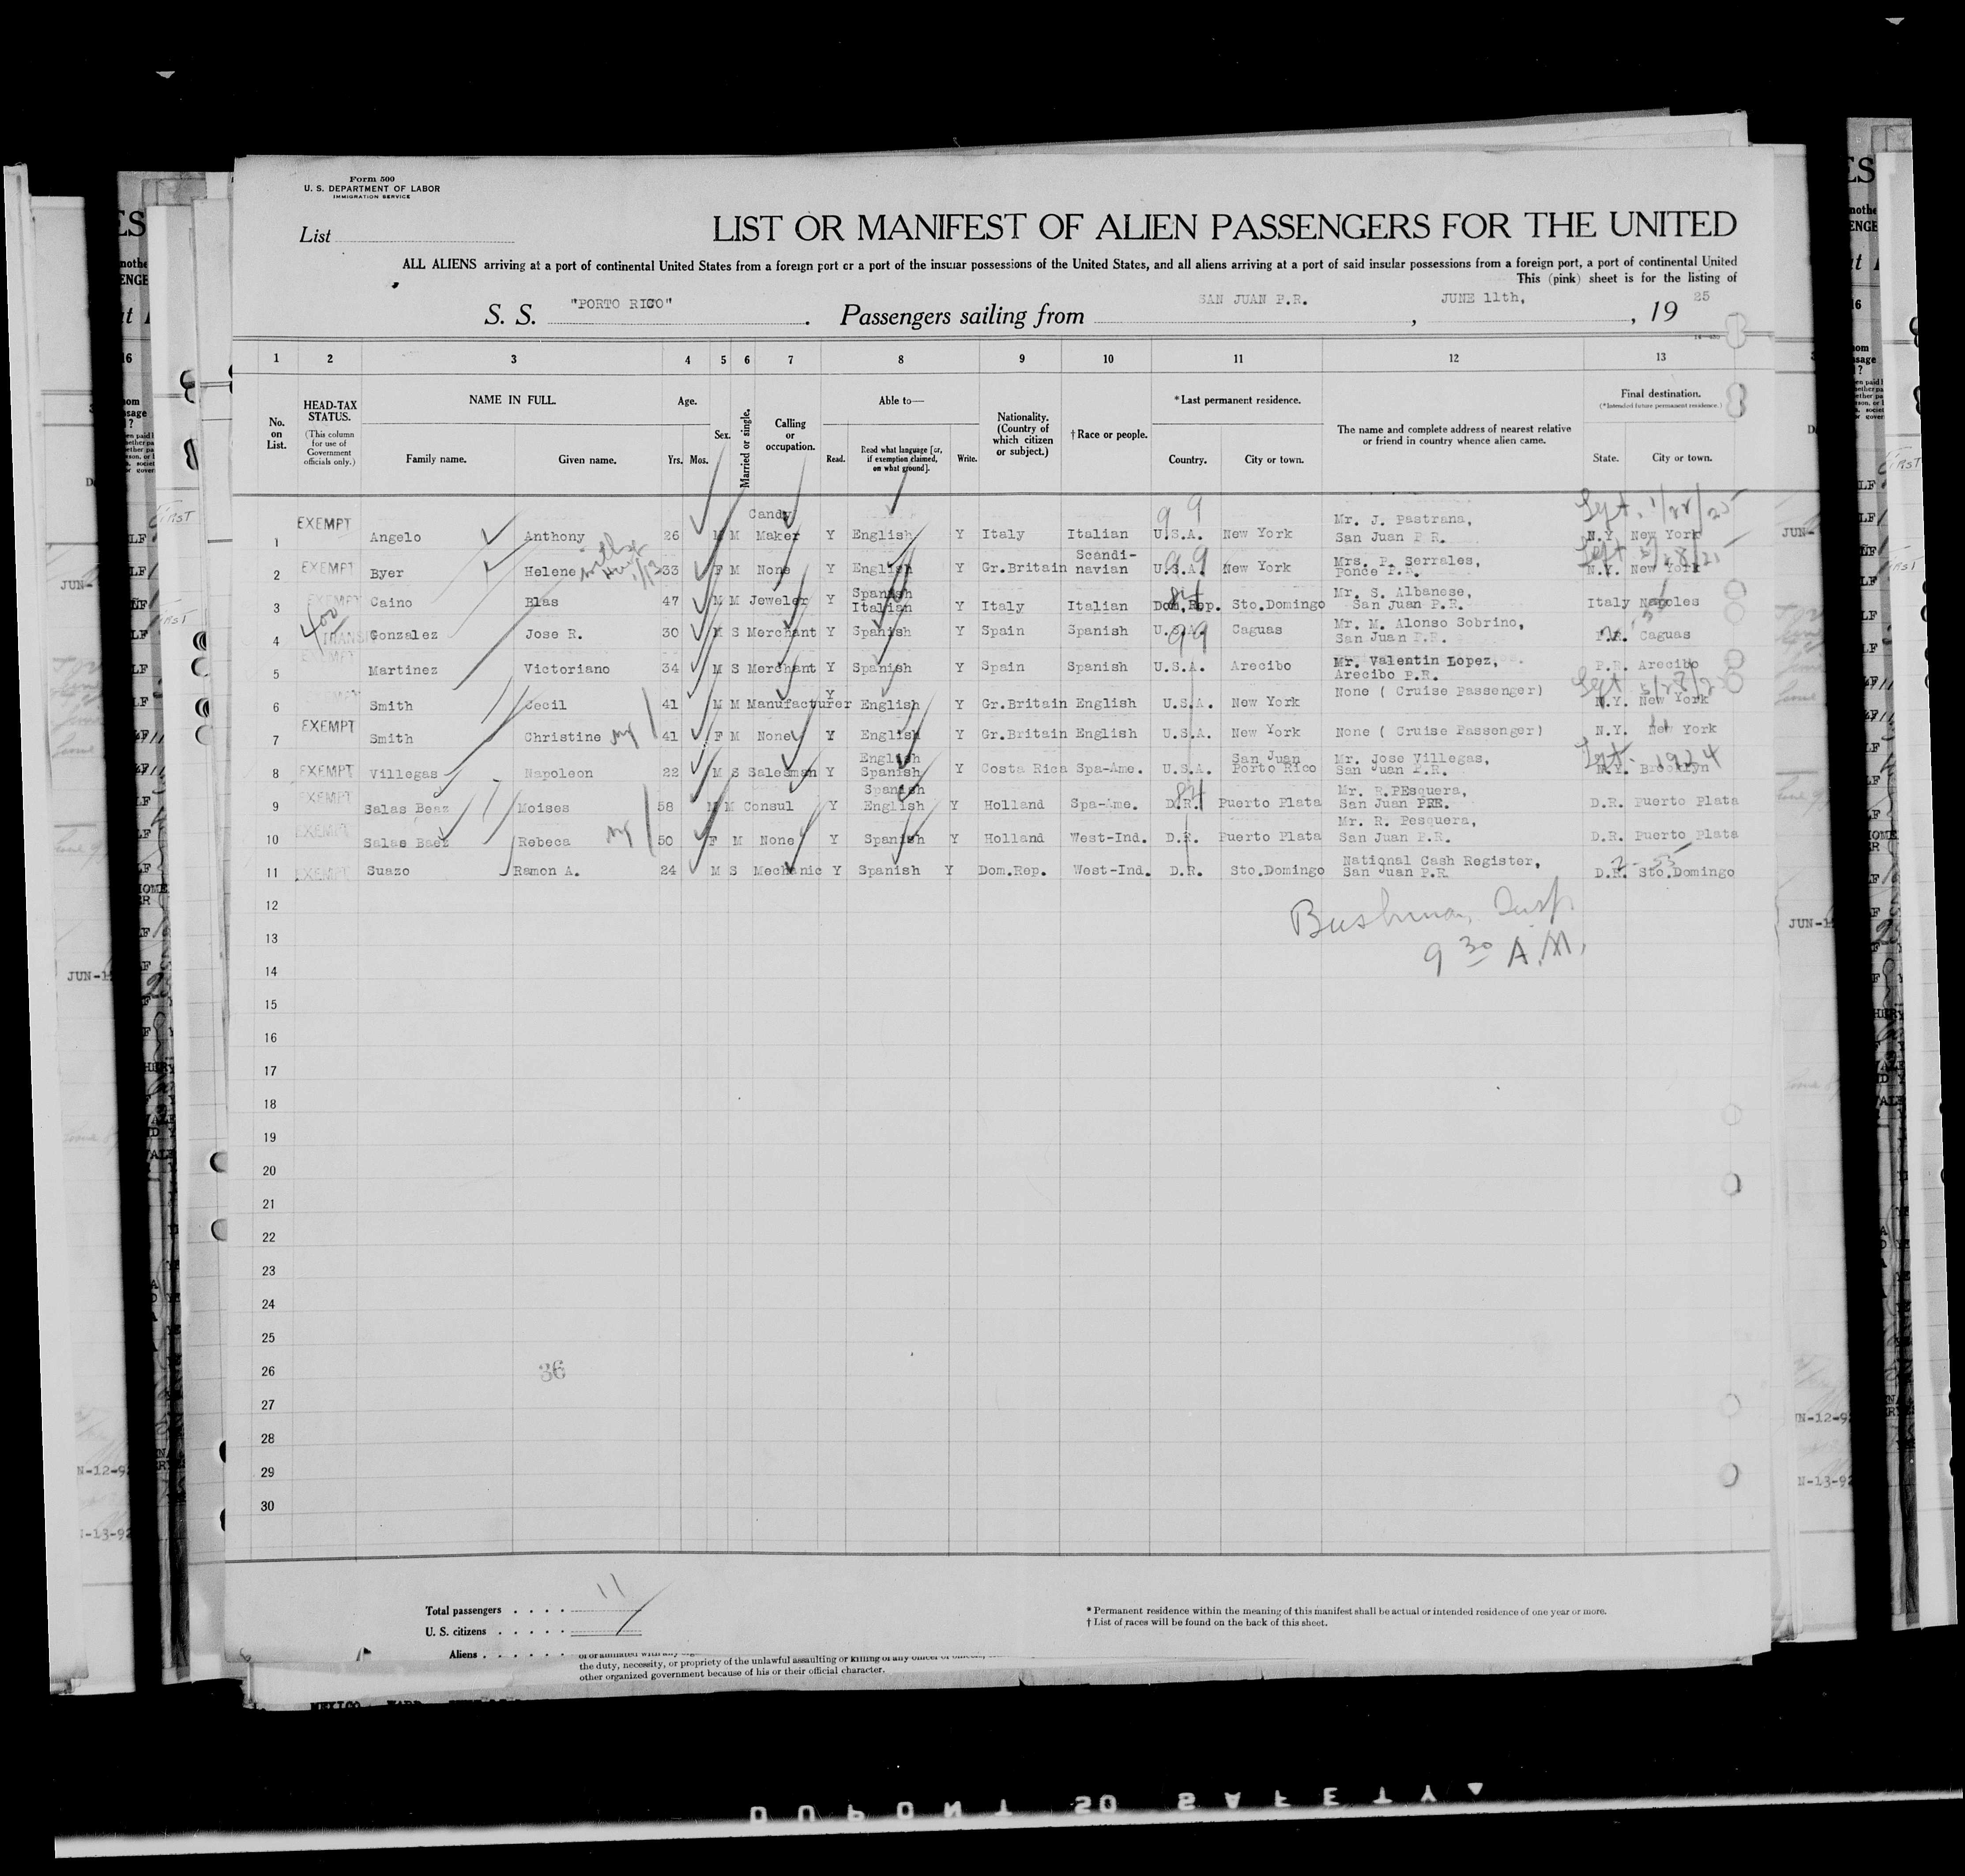 Form 500
U. S. DEPARTMENT OF LABOR
IMMIGRATION SERVICE
List
LIST OR MANIFEST OF ALIEN PASSENGERS FOR THE UNITED
ALL ALIENS arriving at a port of continental United States from a foreign port or a port of the insular possessions of the United States, and all aliens arriving at a port of said insular possessions from a foreign port, a port of continental United
This (pink) sheet is for the listing of
S. S. "PORTO RICO". Passengers sailing from SAN JUAN P.R., JUNE 11th, , 19 25
1 2 3 4 5 6 7 8 9 10 11 12 13
No. on List. HEAD-TAX STATUS. (This column for use of Government officials only.) NAME IN FULL. Family name. Given name. Age. Yrs. Mos. Sex. Married or single. Calling or occupation. Able to— Read. Read what language [or, if exemption claimed, on what ground]. Write. Nationality. (Country of which citizen or subject.) †Race or people. *Last permanent residence. Country. City or town. The name and complete address of nearest relative or friend in country whence alien came. Final destination. (*Intended future permanent residence.) State. City or town.
1 EXEMPT Angelo Anthony 26 M M Candy Maker Y English Y Italy Italian U.S.A. New York Mr. J. Pastrana, San Juan P.R. N.Y. New York
2 EXEMPT Byer Helene 33 F M None Y English Y Gr.Britain Scandi-navian U.S.A. New York Mrs. P. Serrales, Ponce P.R. N.Y. New York
3 EXEMPT Caino Blas 47 M M Jeweler Y Spanish Italian Y Italy Italian Dom.Rep. Sto.Domingo Mr. S. Albanese, San Juan P.R. Italy Napoles
4 TRANSIT Gonzalez Jose R. 30 M S Merchant Y Spanish Y Spain Spanish U.S.A. Caguas Mr. M. Alonso Sobrino, San Juan P.R. P.R. Caguas
5 EXEMPT Martinez Victoriano 34 M S Merchant Y Spanish Y Spain Spanish U.S.A. Arecibo Mr. Valentin Lopez, Arecibo P.R. P.R. Arecibo
6 EXEMPT Smith Cecil 41 M M Manufacturer Y English Y Gr.Britain English U.S.A. New York None ( Cruise Passenger) N.Y. New York
7 EXEMPT Smith Christine 41 F M None Y English Y Gr.Britain English U.S.A. New York None ( Cruise Passenger) N.Y. New York
8 EXEMPT Villegas Napoleon 22 M S Salesman Y English Spanish Y Costa Rica Spa-Ame. U.S.A. San Juan Porto Rico Mr. Jose Villegas, San Juan P.R. N.Y. Brooklyn
9 EXEMPT Salas Beaz Moises 58 M M Consul Y Spanish English Y Holland Spa-Ame. D.R. Puerto Plata Mr. R.PEsquera, San Juan PRE. D.R. Puerto Plata
10 EXEMPT Salas Baez Rebeca 50 F M None Y Spanish Y Holland West-Ind. D.R. Puerto Plata Mr. R. Pesquera, San Juan P.R. D.R. Puerto Plata
11 EXEMPT Suazo Ramon A. 24 M S Mechanic Y Spanish Y Dom.Rep. West-Ind. D.R. Sto.Domingo National Cash Register, San Juan P.R. D.R. Sto.Domingo
12
13
9 30 A.M.
14
15
16
17
18
19
20
21
22
23
24
25
26
36
27
28
29
30
Total passengers 11
U. S. citizens
Aliens
* Permanent residence within the meaning of this manifest shall be actual or intended residence of one year or more.
† List of races will be found on the back of this sheet.
the duty, necessity, or propriety of the unlawful assaulting or killing of any officer or
other organized government because of his or their official character.
DUPONT SO SAFETY